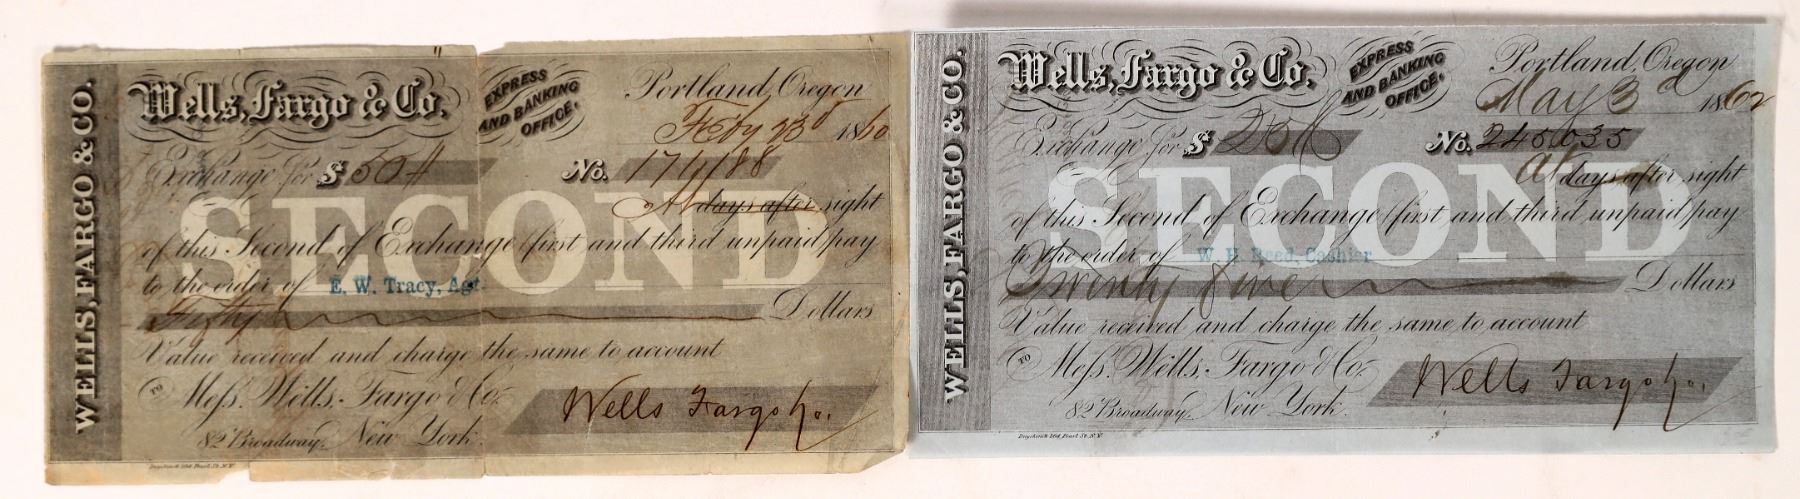 WELLS, FARGO & CO.
Wells, Fargo & Co.
EXPRESS
AND BANKING
OFFICE.
Portland, Oregon
Feby 23d 1860
Exchange for $ 50
No.
SECOND
At days after sight
of this Second of Exchange (first and third unpaid) pay
to the order of E. W. Tracy, Agt
Fifty Dollars
Value received and charge the same to account
TO Mess. Wells, Fargo & Co.
82 Broadway, New York.
Wells Fargo & Co.
WELLS, FARGO & CO.
Wells, Fargo & Co.
EXPRESS
AND BANKING
OFFICE.
Portland, Oregon
May 3d 1862
Exchange for $ 25
No. 245035
SECOND
At days after sight
of this Second of Exchange (first and third unpaid) pay
to the order of W. H. Reed, Cashier
Twenty five Dollars
Value received and charge the same to account
TO Mess. Wells, Fargo & Co.
82 Broadway, New York.
Wells Fargo & Co.